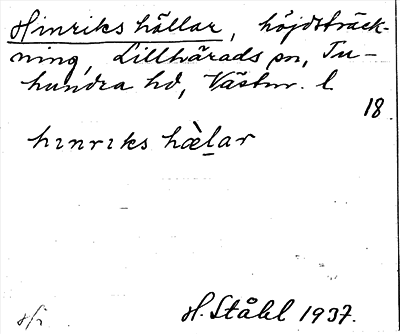 Hinriks hällar, höjdsträck-
ning, Lillhärads sn, Tu-
hundra hd, Västm. l.
18.
hınrıks hæ̀l̠ar
H. Ståhl 1937.